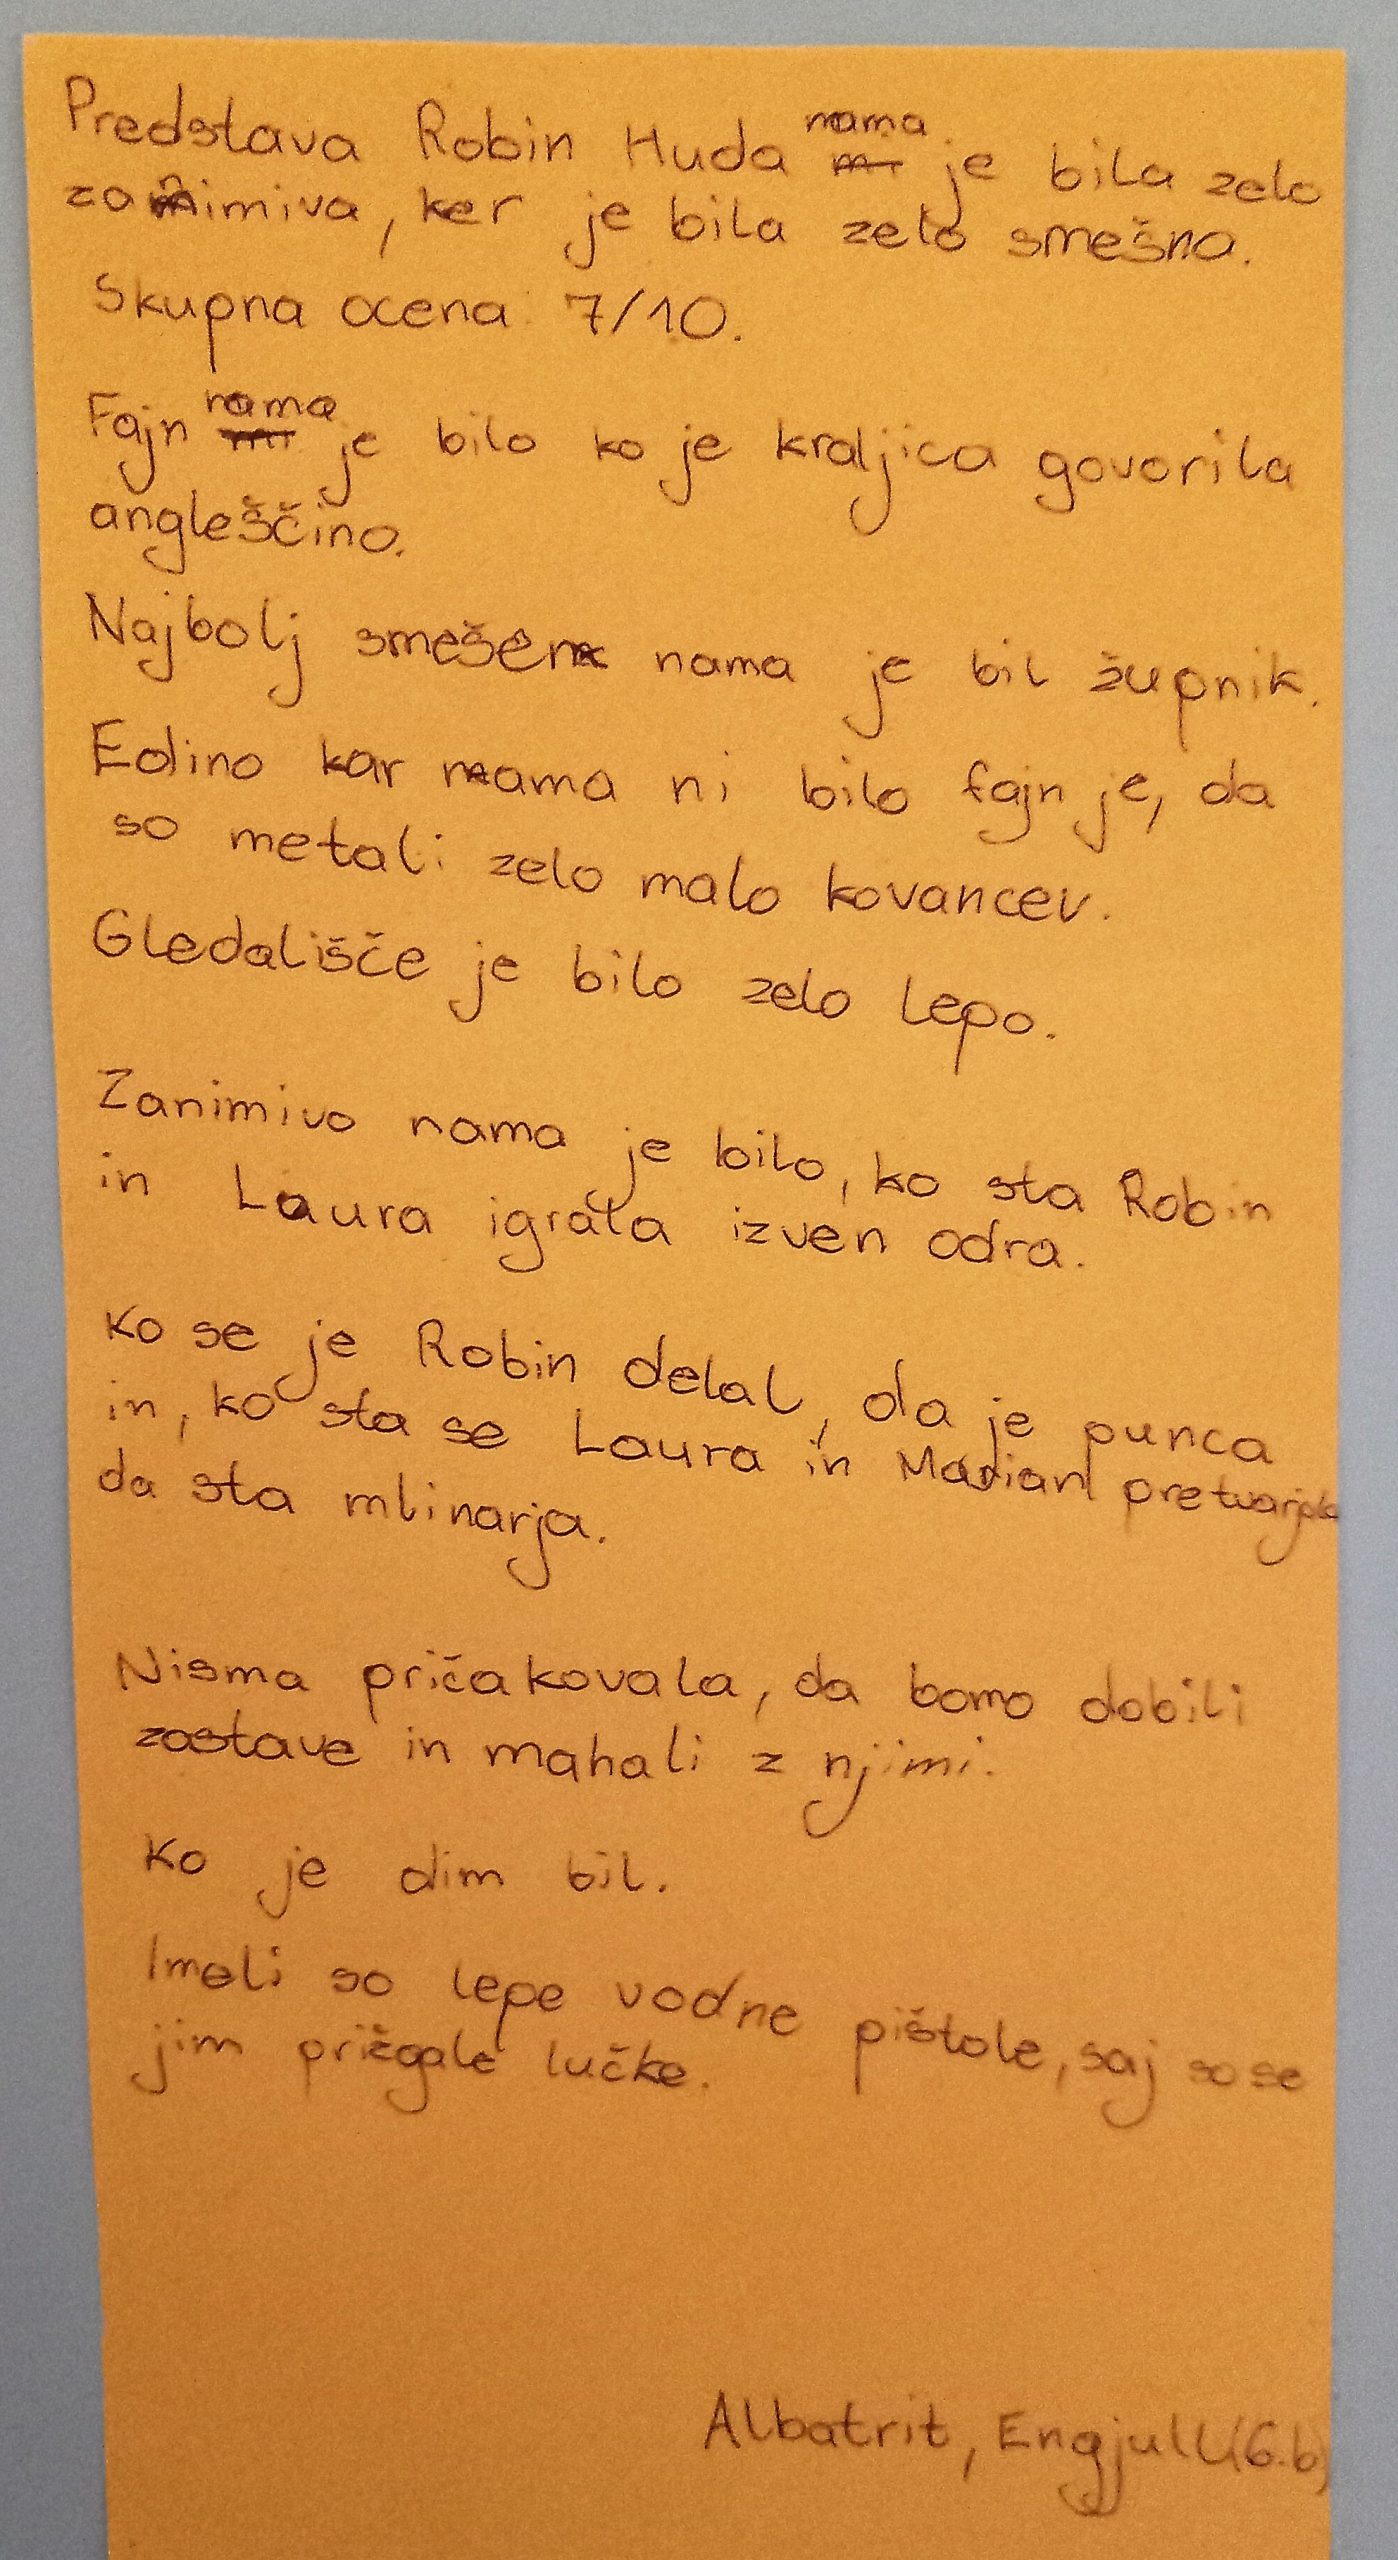 Predstava Robin Huda nama je bila zelo
zanimiva, ker je bila zelo smešna.
Skupna ocena 7/10.
Fajn nama je bilo ko je kraljica govorila
angleščino.
Najbolj smešen nama je bil župnik.
Edino kar nama ni bilo fajn je, da
so metali zelo malo kovancev.
Gledališče je bilo zelo lepo.
Zanimivo nama je bilo, ko sta Robin
in Laura igrala izven odra.
Ko se je Robin delal, da je punca
in, ko sta se Laura in Marian pretvarjala
da sta mlinarja.
Nisma pričakovala, da bomo dobili
zastave in mahali z njimi.
Ko je dim bil.
Imeli so lepe vodne pištole, saj so se
jim prižgale lučke.
Albatrit, Engjull (6.b)